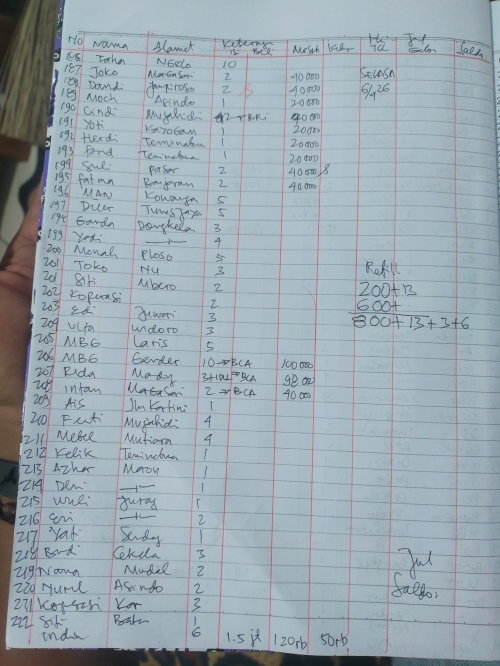 No Nama Alamat Keterangan Isi Beli Masuk Keluar Hri Tgl Jul Galon Saldo
186 Taha Ngelo 10
187 Joko Magasari 2 40000 SELASA
188 Dandi 2 40000 6/4 26
189 Moch Asindo 1 20000
190 Cindi Mujahidi 2 → BRI 40000
191 Yoti Kayogan 1 20000
192 Herdi Teminabua 1 20000
193 Teminabua 1 20000
194 Suli pasar 2 40000
195 Fatma Banjaran 2 40000
196 MAN 5
197 Tunasjaya 5
198 Ganda Dongkela 3
199 Yadi 4
200 Monah Ploso 5
201 Toko NU 3 Refill
201 Siti Mbero 2 200+13
202 Koperasi 2 600+
203 Edi Juwari 3 800+13+3+6
204 Ulfa Widoro 3
205 MBG Laris 5
206 MBG Gender 10 → BCA 100000
207 Rida → BCA 98000
208 Intan Magasari 2 → BCA 40000
209 Ais Jln Kartini 1
200 Mujahidi 4
211 Mebel Mutiara 4
212 Kelik Teminabua 1
213 Azhar 1
214 Deni 1
215 Wuli 1
216 2
217 Yati 1
218 Budi Cekela 3 Jul
219 Nana Mudal 2 Saldo:
220 Nurul Asindo 2
221 Koperasi Kar 3
222 Siti Batu 1
Indin 6 1.5 jt 120rb 50rb